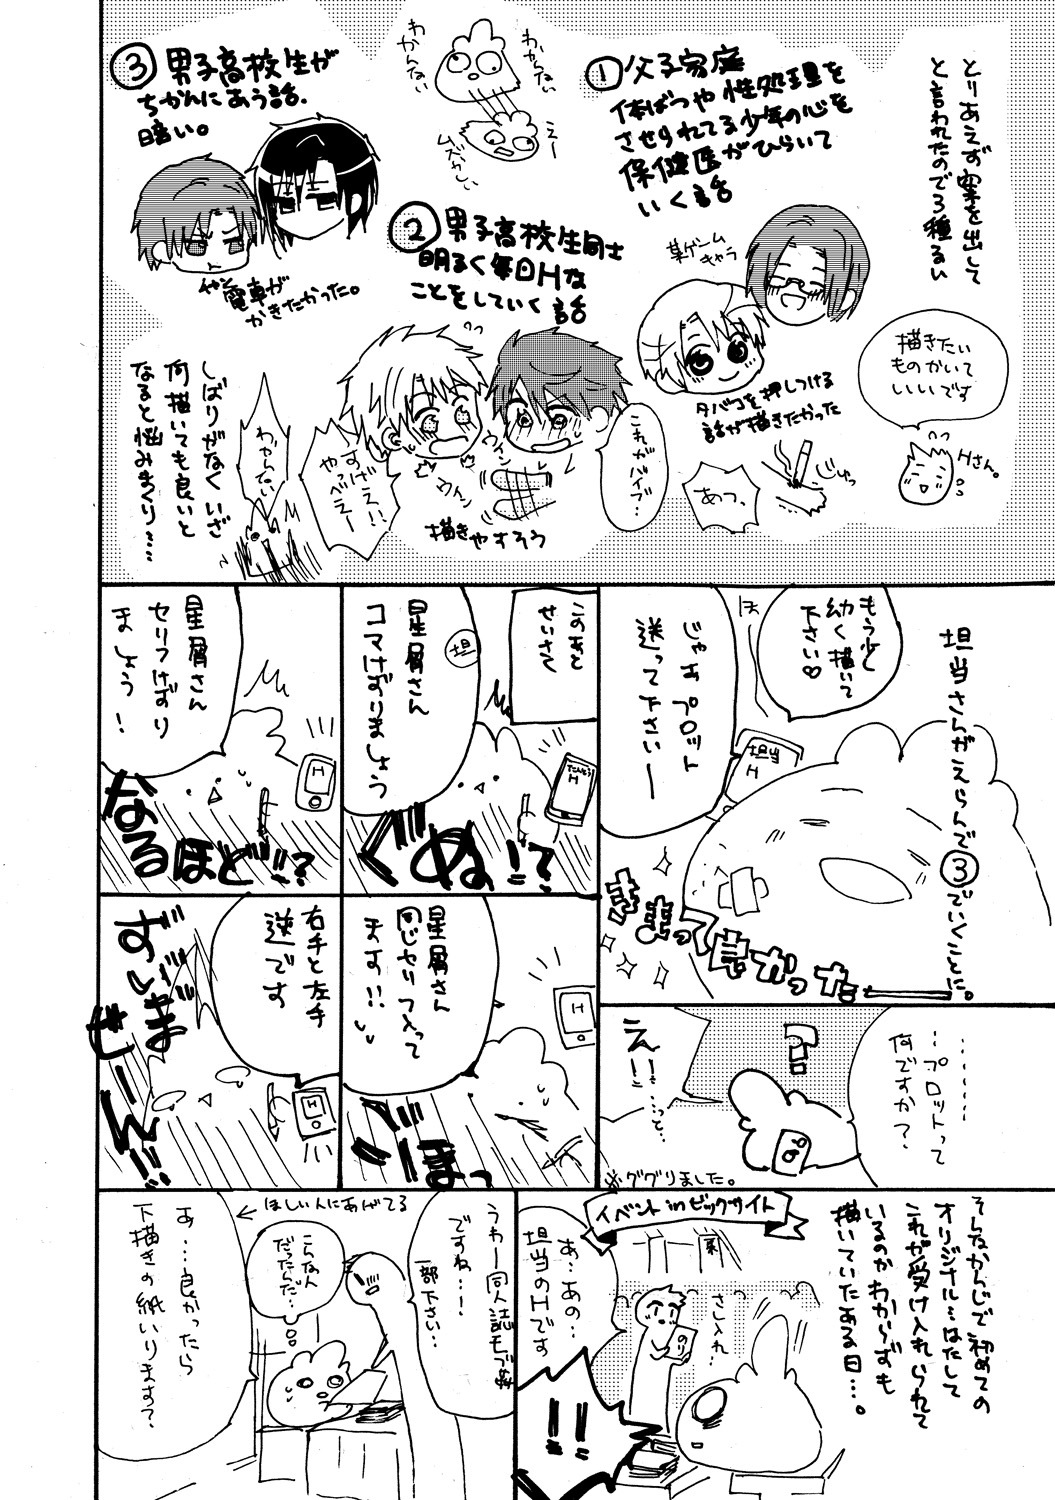 とりあえず案を出して
と言われたので3種るい
①父子家庭
体ばつや性処理を
させられてる少年の心を
保健医がひらいて
いく話
某ゲーム
キャラ
タバコを押しつける
話が描きたかった
あつ、
じゅっ
描きたい
ものかいて
いいです
Hさん。
わからない
わかんない
えー
ムズかしい
②男子高校生同士
明るく毎日Hな
ことをしていく話
これが
バイブ…
すげえ!!
やっべえー
ウィン
ウィン
描きやすそう
③男子高校生が
ちかんにあう話。
暗い。
電車が
かきたかった。
しばりがなくいざ
何描いても良いと
なると悩みまくり……
わからない
担当さんがえらんで
③でいくことに。
もう少し
幼く描いて
下さい♡
ほ
じゃあプロット
送って下さいー
担当
H
きまって良かったー
………
…プロットって
何ですか?
?
え!!
…っと…
※ググりました。
このあと
せいさく
星屑さん
コマけずりましょう
担
たんとう
H
ぐぬ!?
星屑さん
セリフけずり
ましょう!
H
なるほど!!?
星屑さん
同じセリフ入って
ます!!
H
ごほっ
右手と左手
逆です
H
ずいまぜーん!!
そんなかんじで初めての
オリジナル…はたして
これが受け入れられて
いるのかわからずも
描いていたある日…。
イベントinビッグサイト
さし入れ…
のり
あ…あの…
担当のHです
!!
うわー同人誌
ですね…!
一部下さい…
こんな人
だったんだ…
ほしい人にあげてる
あ…良かったら
下描きの紙いります?